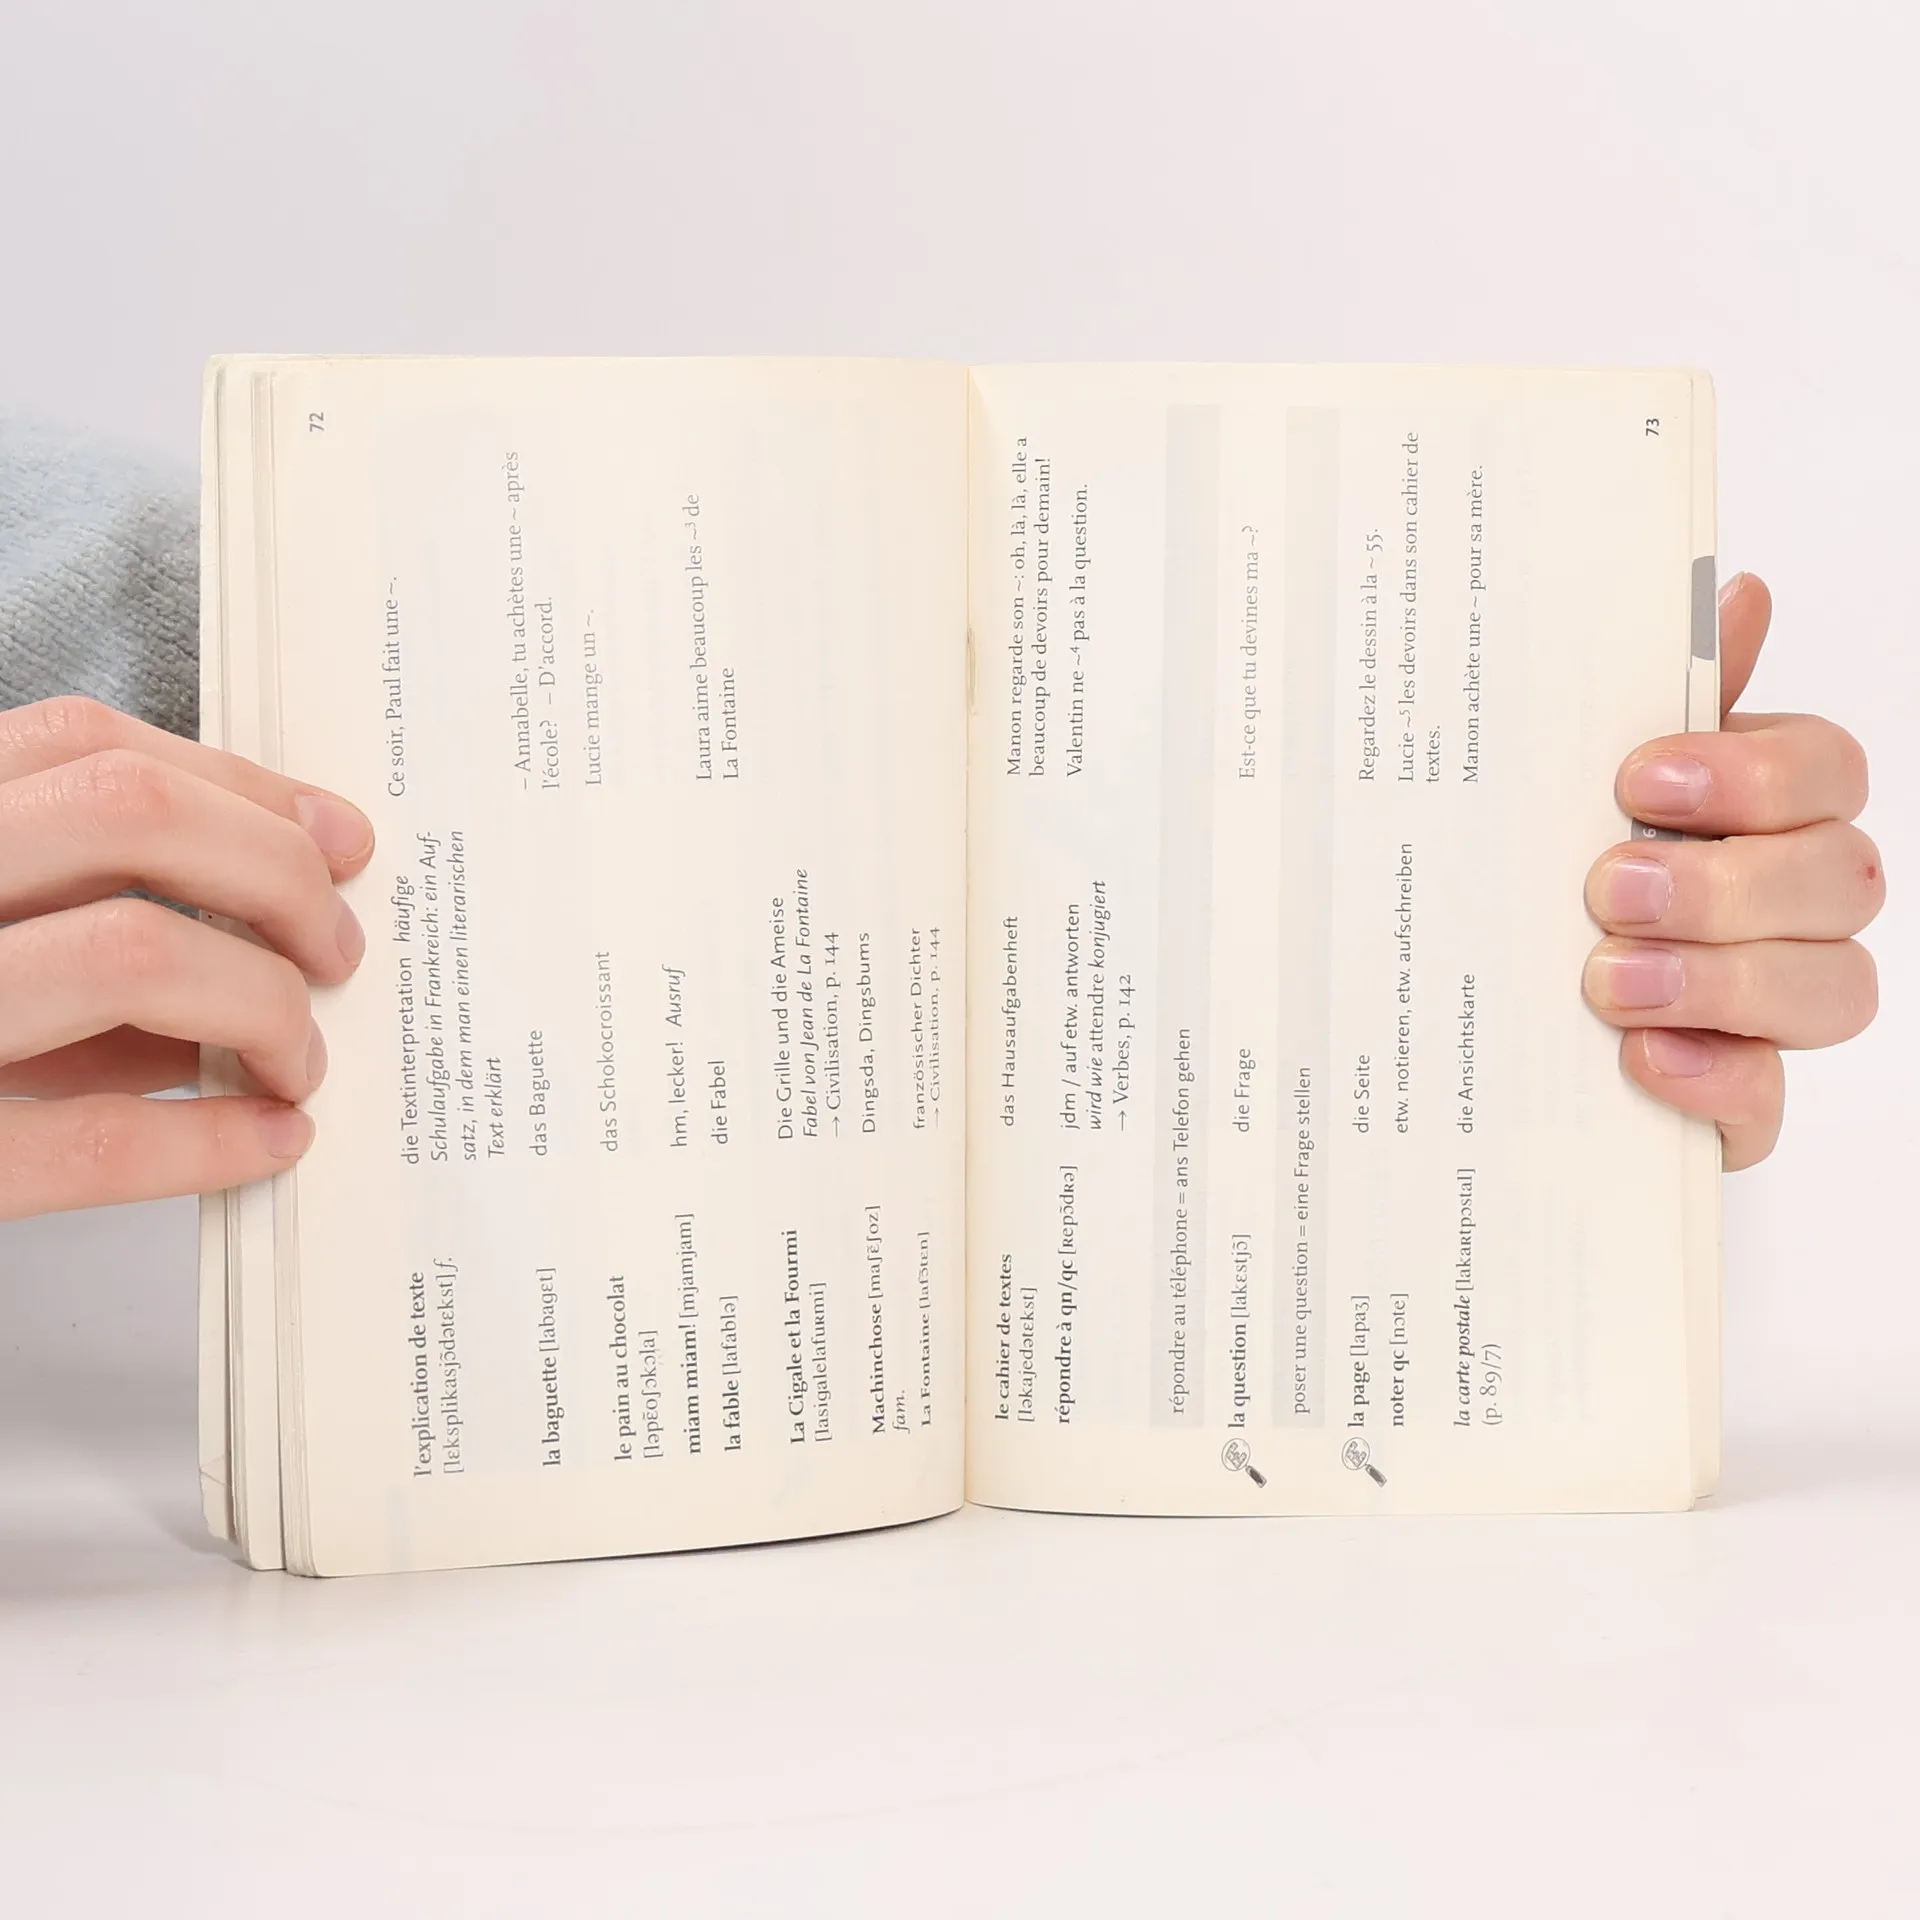 l'explication de texte
[lɛksplikasjɔ̃dətɛkst] f.
die Textinterpretation häufige
Schulaufgabe in Frankreich: ein Auf-
satz, in dem man einen literarischen
Text erklärt
Ce soir, Paul fait une ~.
la baguette [labagɛt]
das Baguette
– Annabelle, tu achètes une ~ après
l'école? – D'accord.
le pain au chocolat
[ləpɛ̃oʃɔkɔla]
das Schokocroissant
Lucie mange un ~.
miam miam! [mjamjam]
hm, lecker! Ausruf
la fable [lafablə]
die Fabel
Laura aime beaucoup les ~³ de
La Fontaine
La Cigale et la Fourmi
[lasigalelafuʀmi]
Die Grille und die Ameise
Fabel von Jean de La Fontaine
→ Civilisation, p. 144
Machinchose [maʃɛ̃ʃoz]
fam.
Dingsda, Dingsbums
La Fontaine [lafɔ̃tɛn]
französischer Dichter
→ Civilisation, p. 144
72
le cahier de textes
[ləkajedətɛkst]
das Hausaufgabenheft
Manon regarde son ~: oh, là, là, elle a
beaucoup de devoirs pour demain!
répondre à qn/qc [ʀepɔ̃dʀə]
jdm / auf etw. antworten
wird wie attendre konjugiert
→ Verbes, p. 142
Valentin ne ~⁴ pas à la question.
répondre au téléphone = ans Telefon gehen
la question [lakɛstjɔ̃]
die Frage
Est-ce que tu devines ma ~?
poser une question = eine Frage stellen
la page [lapaʒ]
die Seite
Regardez le dessin à la ~ 55.
noter qc [nɔte]
etw. notieren, etw. aufschreiben
Lucie ~⁵ les devoirs dans son cahier de
textes.
la carte postale [lakaʀtpɔstal]
(p. 89/7)
die Ansichtskarte
Manon achète une ~ pour sa mère.
73
6